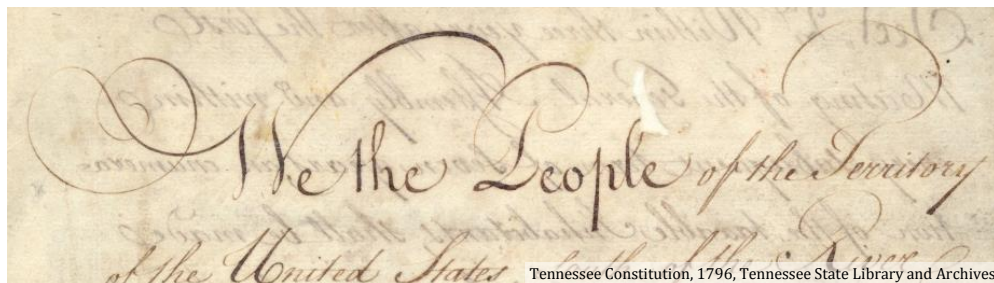 We the People of the Territory
of the United States, South of the River
Tennessee Constitution, 1796, Tennessee State Library and Archives